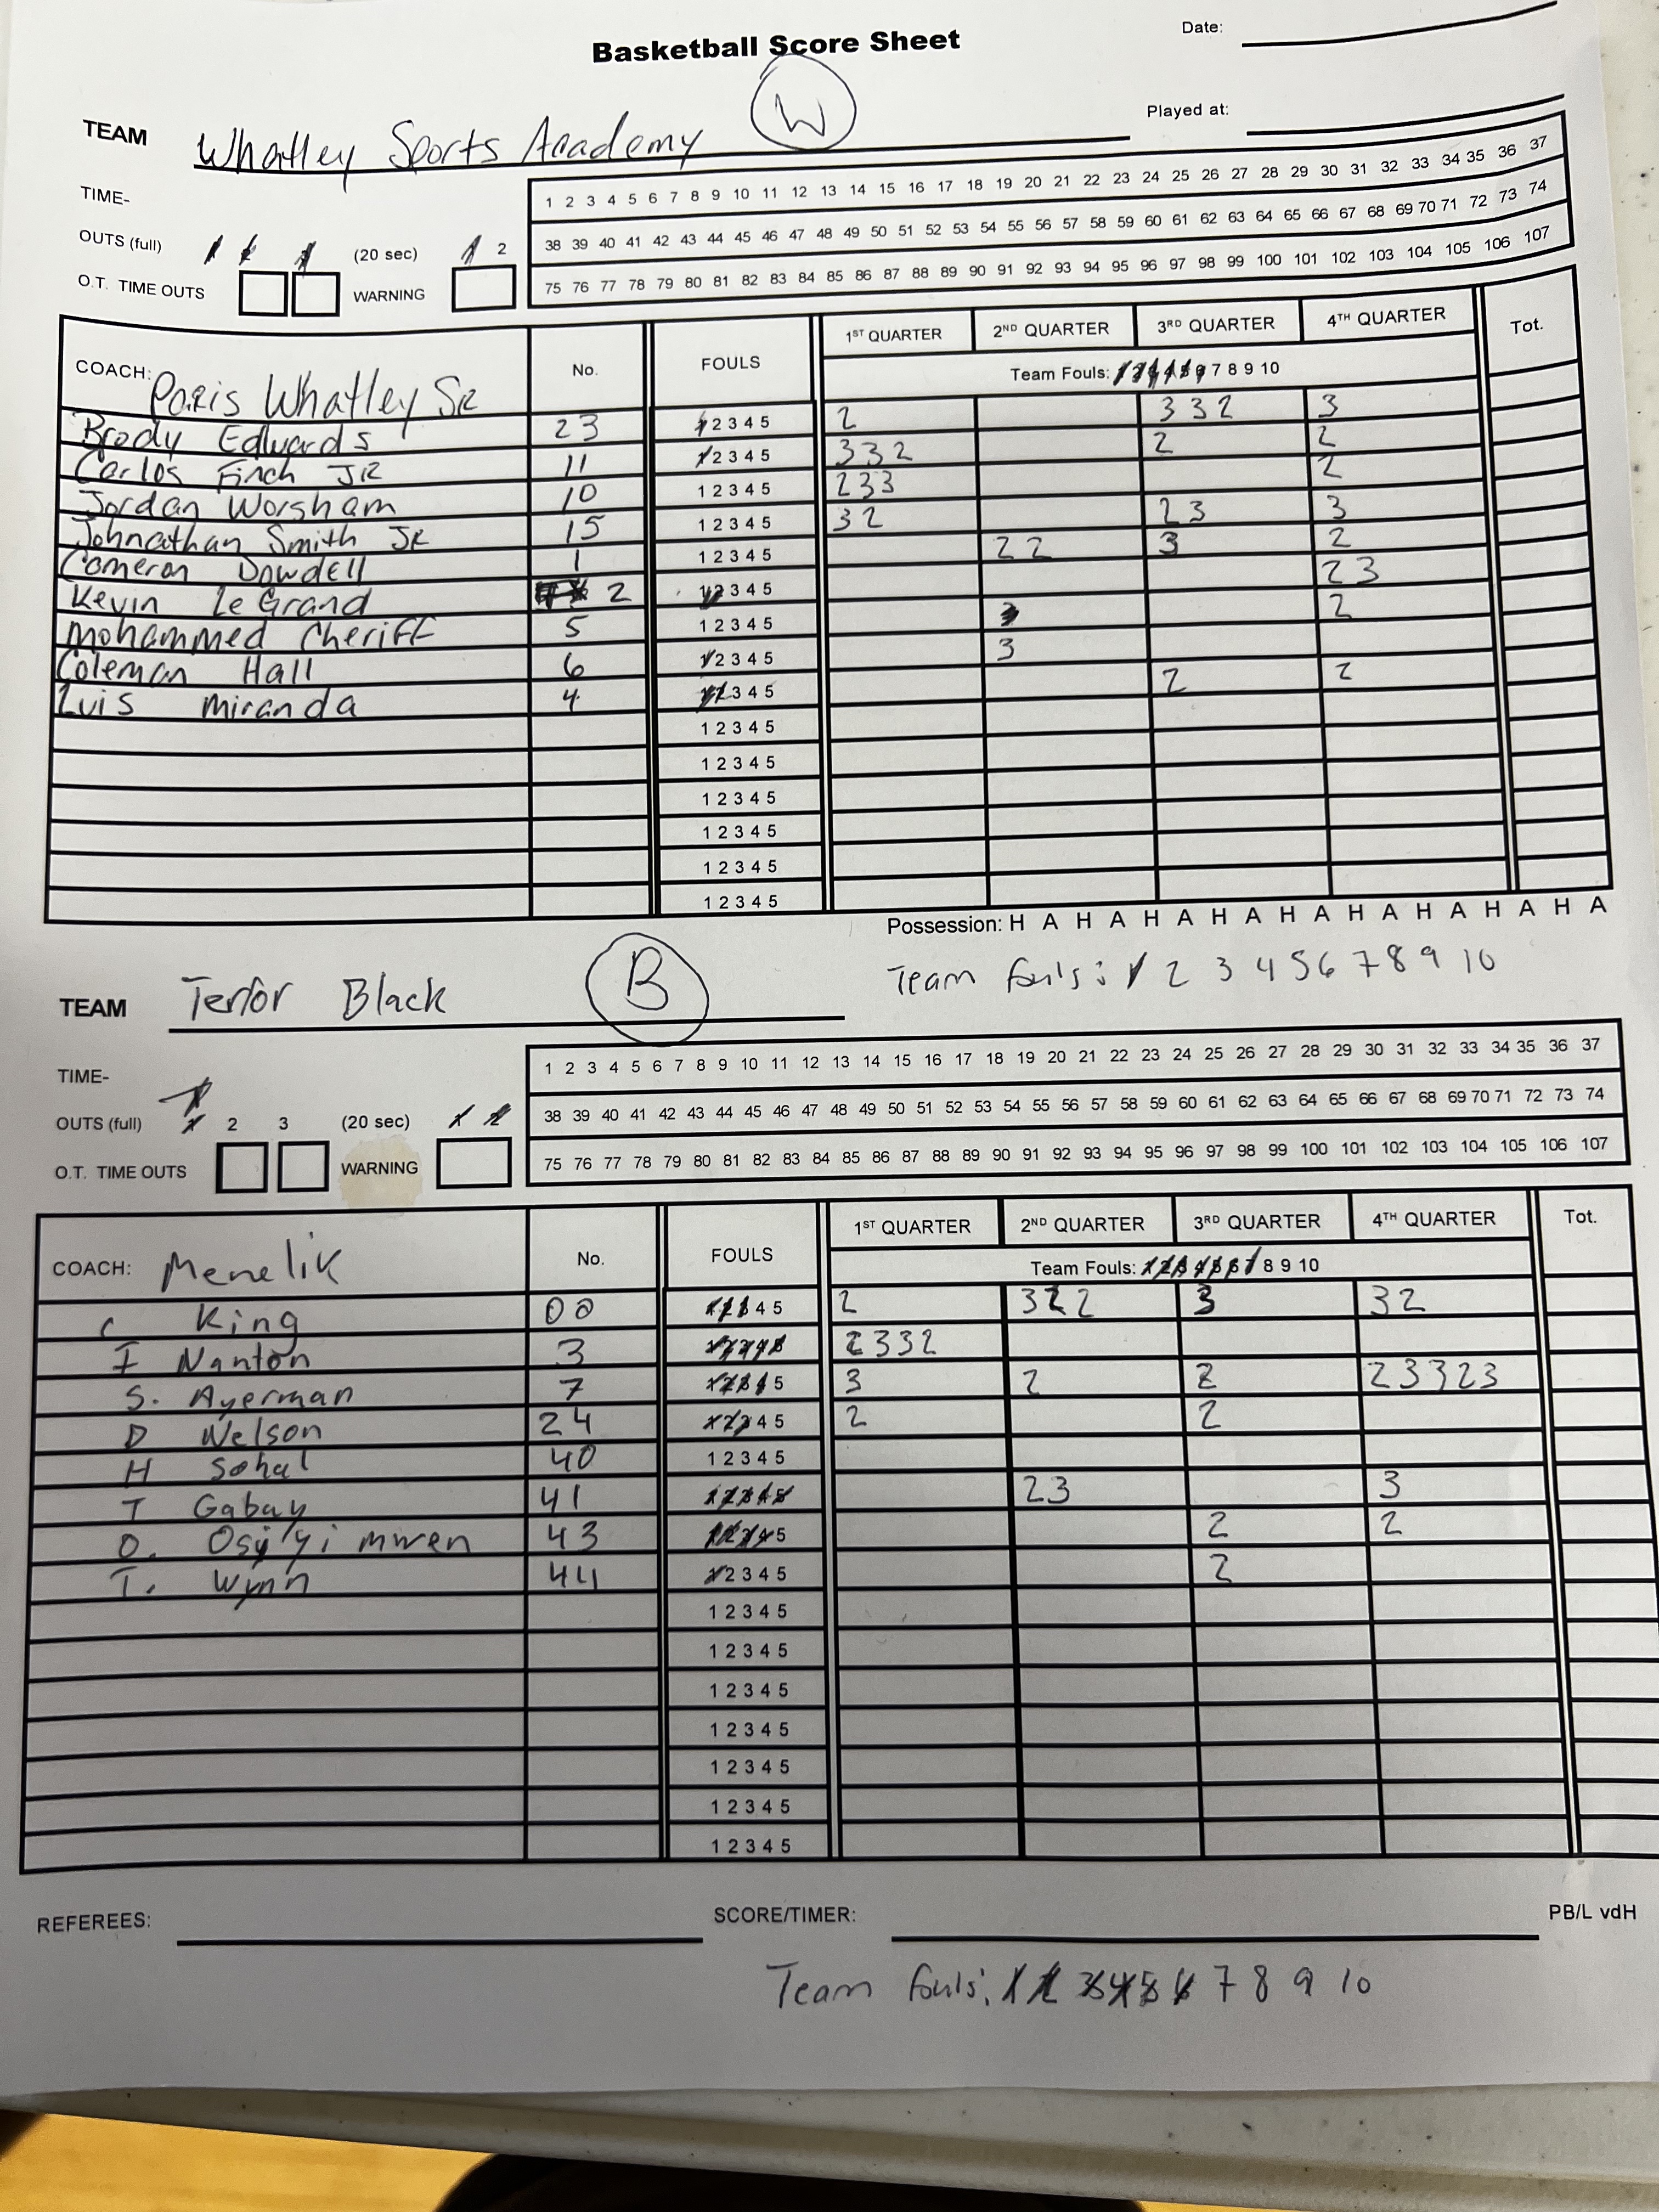 Basketball Score Sheet
Date:
Played at:
TEAM Whatley Sports Academy W
TIME-
OUTS (full) (20 sec) 1 2
O.T. TIME OUTS WARNING
1 2 3 4 5 6 7 8 9 10 11 12 13 14 15 16 17 18 19 20 21 22 23 24 25 26 27 28 29 30 31 32 33 34 35 36 37
38 39 40 41 42 43 44 45 46 47 48 49 50 51 52 53 54 55 56 57 58 59 60 61 62 63 64 65 66 67 68 69 70 71 72 73 74
75 76 77 78 79 80 81 82 83 84 85 86 87 88 89 90 91 92 93 94 95 96 97 98 99 100 101 102 103 104 105 106 107
COACH: Paris Whatley Sr No. FOULS 1ST QUARTER 2ND QUARTER 3RD QUARTER 4TH QUARTER Tot.
Team Fouls: 1 2 3 4 5 6 7 8 9 10
Brody Edwards 23 1 2 3 4 5 2 3 3 2 3
Carlos Finch JR 11 1 2 3 4 5 3 3 2 2 2
Jordan Worsham 10 1 2 3 4 5 2 3 3 2
Johnathan Smith JR 15 1 2 3 4 5 3 2 2 3 3
Cameron Dowdell 1 1 2 3 4 5 2 2 3 2
Kevin LeGrand 2 1 2 3 4 5 2 3
Mohammed Cheriff 5 1 2 3 4 5 2
Coleman Hall 6 1 2 3 4 5 3
Luis Miranda 4 1 2 3 4 5 2 2
1 2 3 4 5
1 2 3 4 5
1 2 3 4 5
1 2 3 4 5
1 2 3 4 5
1 2 3 4 5
Possession: H A H A H A H A H A H A H A H A H A
Team fouls: 1 2 3 4 5 6 7 8 9 10
TEAM Terror Black B
TIME-
OUTS (full) 1 2 3 (20 sec) 1 2
O.T. TIME OUTS WARNING
1 2 3 4 5 6 7 8 9 10 11 12 13 14 15 16 17 18 19 20 21 22 23 24 25 26 27 28 29 30 31 32 33 34 35 36 37
38 39 40 41 42 43 44 45 46 47 48 49 50 51 52 53 54 55 56 57 58 59 60 61 62 63 64 65 66 67 68 69 70 71 72 73 74
75 76 77 78 79 80 81 82 83 84 85 86 87 88 89 90 91 92 93 94 95 96 97 98 99 100 101 102 103 104 105 106 107
COACH: Menelik No. FOULS 1ST QUARTER 2ND QUARTER 3RD QUARTER 4TH QUARTER Tot.
Team Fouls: 1 2 3 4 5 6 7 8 9 10
C King 00 1 2 3 4 5 2 3 2 2 3 3 2
I Nanton 3 1 2 3 4 5 2 3 3 2
S. Ayerman 7 1 2 3 4 5 3 2 2 2 3 3 2 3
D Nelson 24 1 2 3 4 5 2 2
H Sohal 40 1 2 3 4 5
T Gabay 41 1 2 3 4 5 2 3 3
O. 43 1 2 3 4 5 2 2
T. Wynn 44 1 2 3 4 5 2
1 2 3 4 5
1 2 3 4 5
1 2 3 4 5
1 2 3 4 5
1 2 3 4 5
1 2 3 4 5
1 2 3 4 5
REFEREES: SCORE/TIMER: PB/L vdH
Team fouls: 1 2 3 4 5 6 7 8 9 10